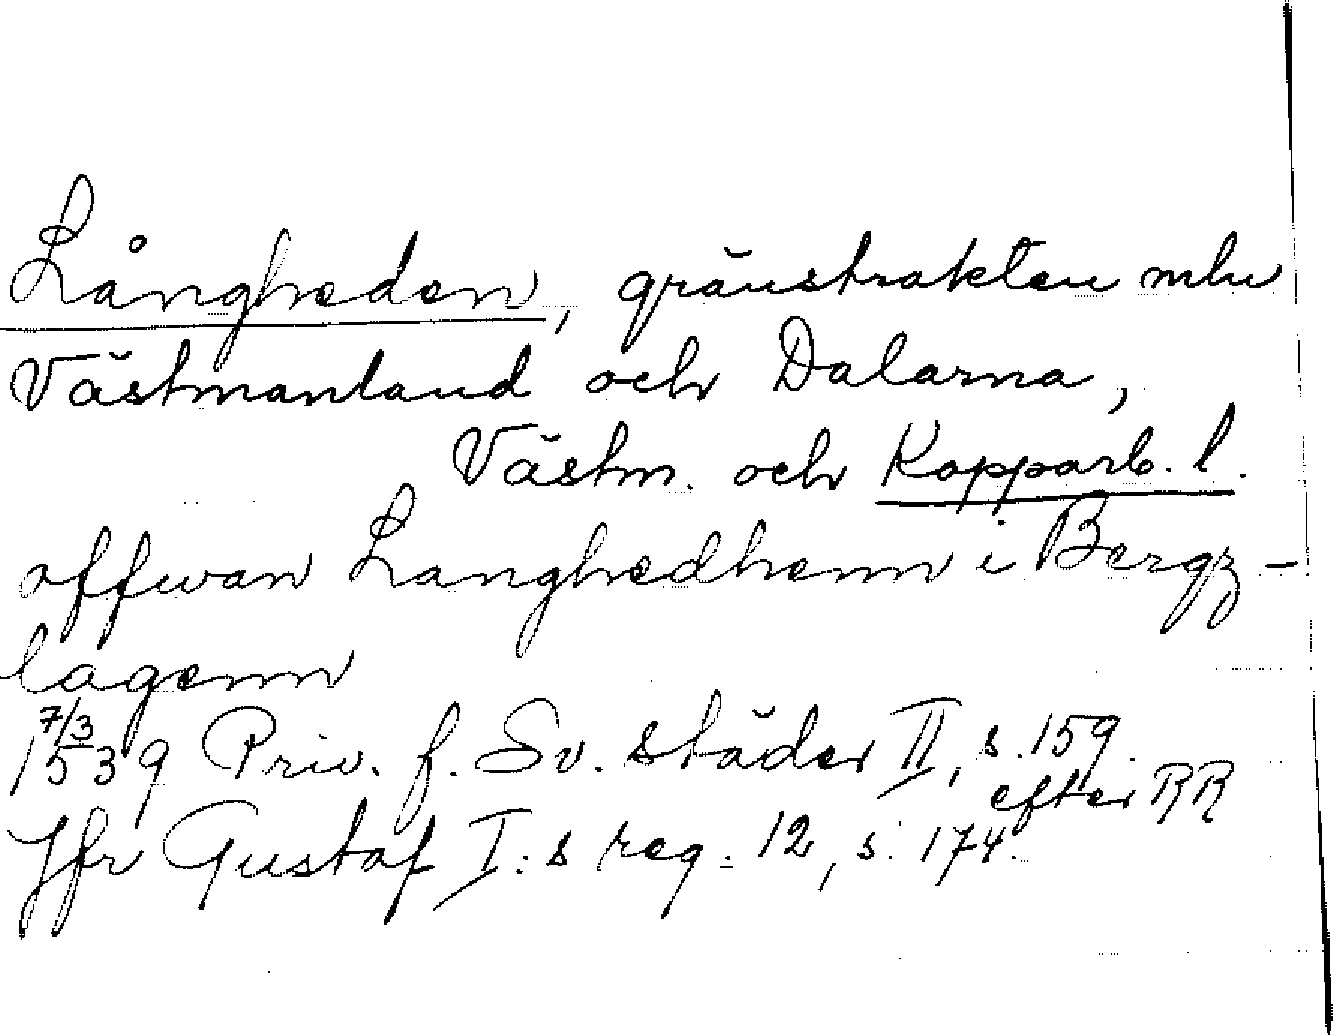 Långheden, gränstrakten mln
Västmanland och Dalarna,
Västm. och Kopparb. l.
offwan Langhedhenn i Bergz-
lagenn
7/3
1539 Priv. f. Sv. städer II, s. 159.
efter RR
Jfr Gustaf I:s reg. 12, s. 174.